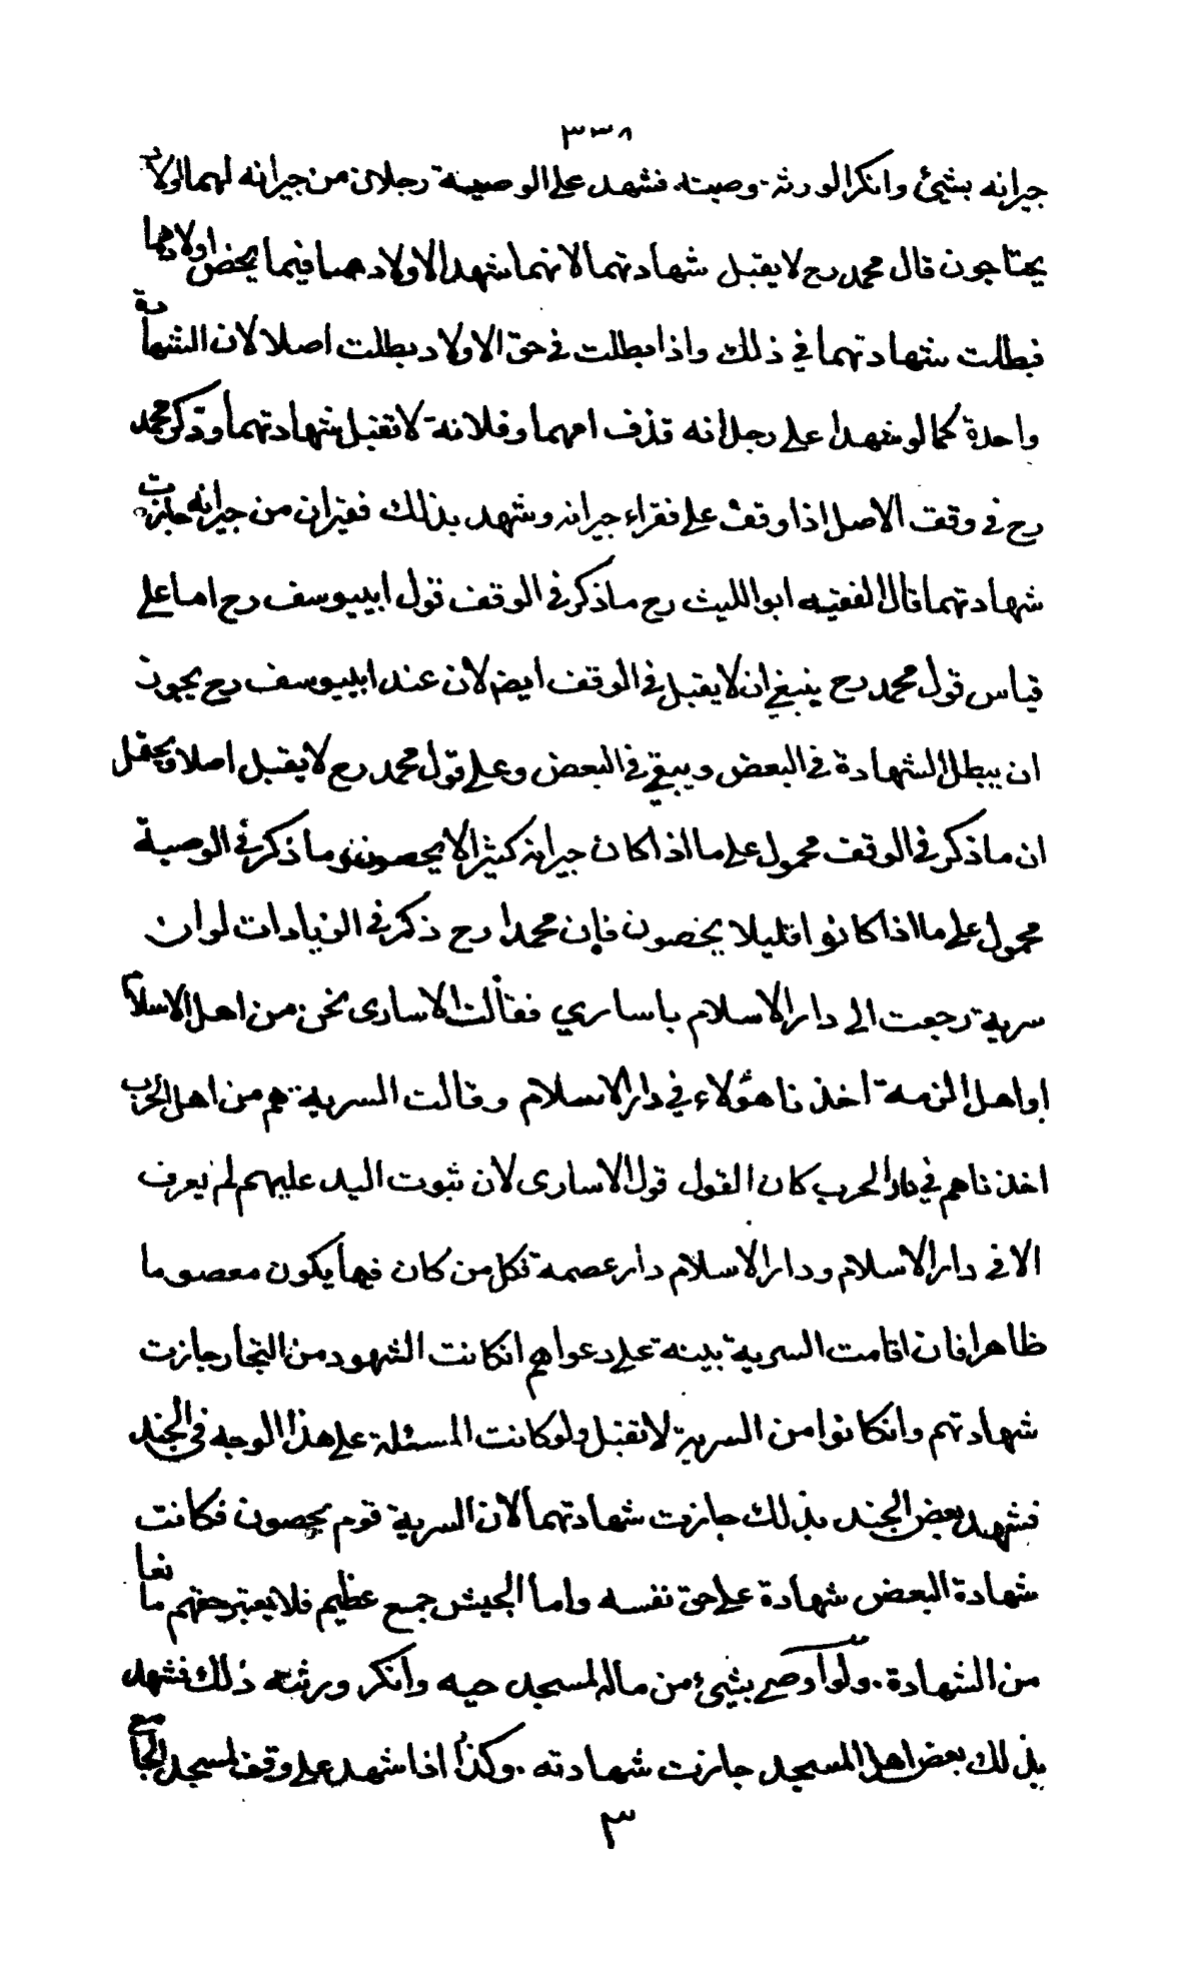 ٣٣٨
جيرانه بشيئ وانكر الورثة وصيته فشهد على الوصية رجلان من جيرانه لهما اولاد
يحتاجون قال محمد رح لا يقبل شهادتهما لانهما شهدا لاولادهما فيما يخص اولادهما
فبطلت شهادتهما في ذلك واذا بطلت في حق الاولاد بطلت اصلا لان الشهادة
واحدة كما لو شهدا على رجل انه قذف امهما وفلانة لا تقبل شهادتهما وذكر محمد
رح في وقف الاصل اذا وقف على فقراء جيرانه وشهد بذلك فقيران من جيرانه جازت
شهادتهما قال الفقيه ابو الليث رح ما ذكر في الوقف قول ابييوسف رح اما على
قياس قول محمد رح ينبغي ان لا يقبل في الوقف ايضم لان عند ابييوسف رح يجوز
ان يبطل الشهادة في البعض ويبقي في البعض وعلى قول محمد رح لا يقبل اصلا ويحتمل
ان ما ذكر في الوقف محمول على ما اذا كان جيرانه كثيرا لا يحصون وما ذكر في الوصية
محمول على ما اذا كانوا قليلا يخصون فإن محمدا رح ذكر في الزيادات لو ان
سرية رجعت الى دار الاسلام باساري فقالت الاسارى نحن من اهل الاسلام
او اهل الذمة اخذنا هؤلاء في دار الاسلام وقالت السرية هم من اهل الحرب
اخذناهم في دار الحرب كان القول قول الاسارى لان ثبوت اليد عليهم لم يعرف
الا في دار الاسلام ودار الاسلام دار عصمة فكل من كان فيها يكون معصوما
ظاهرا فان اقامت السرية بينة على دعواهم انكانت الشهود من التجار جازت
شهادتهم وانكانوا من السرية لا تقبل ولو كانت المسئلة على هذا الوجه في الجند
فشهد بعض الجند بذلك جازت شهادتهما لان السرية قوم يحصون فكانت
شهادة البعض شهادة على حق نفسه واما الجيش جمع عظيم فلا يعتبر حقهم مانعا
من الشهادة . ولو اوصى بشيئ من ماله لمسجد حيه وانكر ورثته ذلك فشهد
بذلك بعض اهل المسجد جازت شهادته . وكذا اذا شهد على وقف لمسجد الجامع
٣